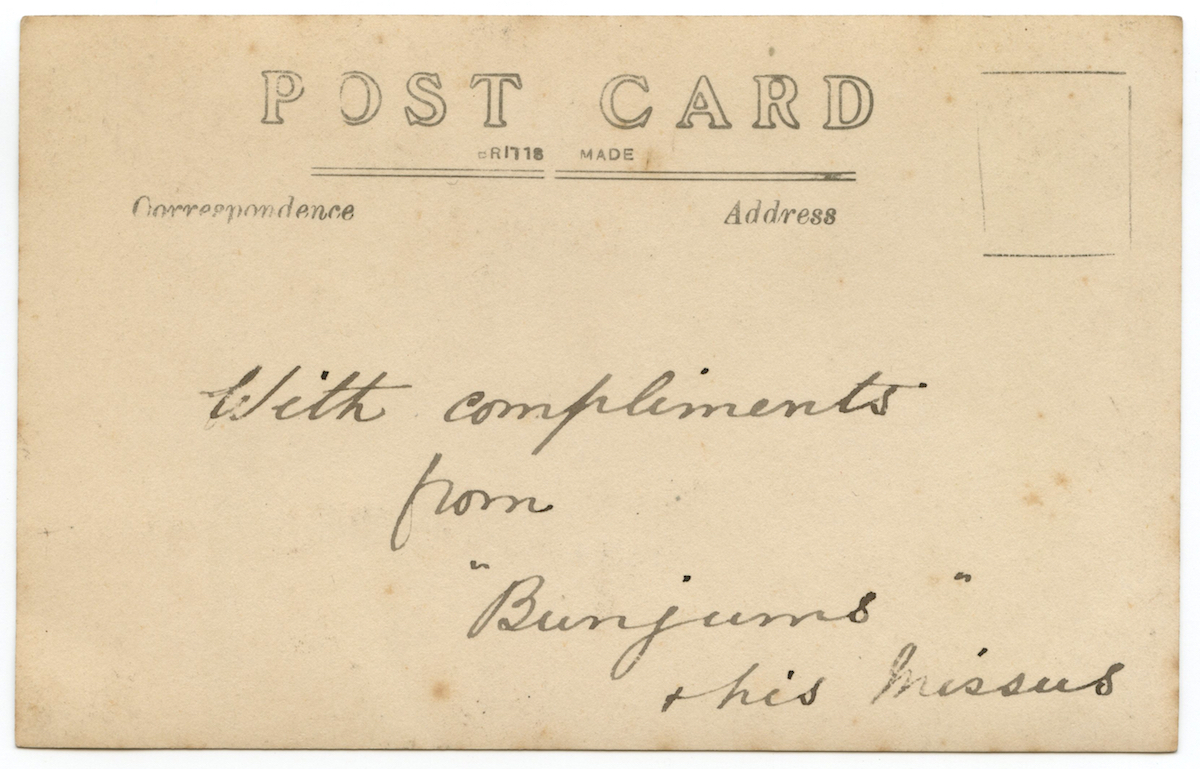 POST CARD
BRITISH MADE
Correspondence
Address
With compliments
from
"Bunjums"
+ his Missus